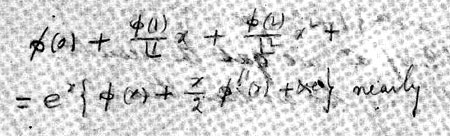 φ(0) + φ(1)/∟1 x + φ(2)/∟2 x² +
= eˣ { φ(x) + x/2 φ''(x) + &c } nearly